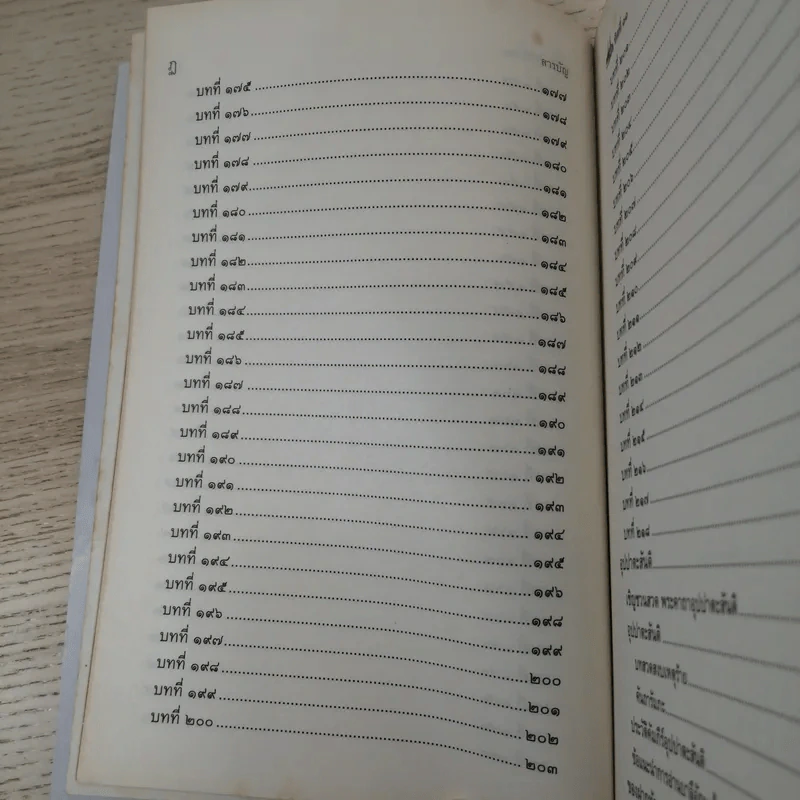 ฏ สารบัญ
บทที่ ๑๗๕ ........ ๑๗๗
บทที่ ๑๗๖ ........ ๑๗๘
บทที่ ๑๗๗ ........ ๑๗๙
บทที่ ๑๗๘ ........ ๑๘๐
บทที่ ๑๗๙ ........ ๑๘๑
บทที่ ๑๘๐ ........ ๑๘๒
บทที่ ๑๘๑ ........ ๑๘๓
บทที่ ๑๘๒ ........ ๑๘๔
บทที่ ๑๘๓ ........ ๑๘๕
บทที่ ๑๘๔ ........ ๑๘๖
บทที่ ๑๘๕ ........ ๑๘๗
บทที่ ๑๘๖ ........ ๑๘๘
บทที่ ๑๘๗ ........ ๑๘๙
บทที่ ๑๘๘ ........ ๑๙๐
บทที่ ๑๘๙ ........ ๑๙๑
บทที่ ๑๙๐ ........ ๑๙๒
บทที่ ๑๙๑ ........ ๑๙๓
บทที่ ๑๙๒ ........ ๑๙๔
บทที่ ๑๙๓ ........ ๑๙๕
บทที่ ๑๙๔ ........ ๑๙๖
บทที่ ๑๙๕ ........ ๑๙๘
บทที่ ๑๙๖ ........ ๑๙๙
บทที่ ๑๙๗ ........ ๒๐๐
บทที่ ๑๙๘ ........ ๒๐๑
บทที่ ๑๙๙ ........ ๒๐๒
บทที่ ๒๐๐ ........ ๒๐๓
บทที่ ๒๐๑
บทที่ ๒๐๒
บทที่ ๒๐๓
บทที่ ๒๐๔
บทที่ ๒๐๕
บทที่ ๒๐๖
บทที่ ๒๐๗
บทที่ ๒๐๘
บทที่ ๒๐๙
บทที่ ๒๑๐
บทที่ ๒๑๑
บทที่ ๒๑๒
บทที่ ๒๑๓
บทที่ ๒๑๔
บทที่ ๒๑๕
บทที่ ๒๑๖
บทที่ ๒๑๗
บทที่ ๒๑๘
อุปปาตะสันติ
เชิญชวนสวด พระคาถาอุปปาตะสันติ
อุปปาตะสันติ
บทสวดสงบเหตุร้าย
คันถารัมภะ
ประวัติคัมภีร์อุปปาตะสันติ